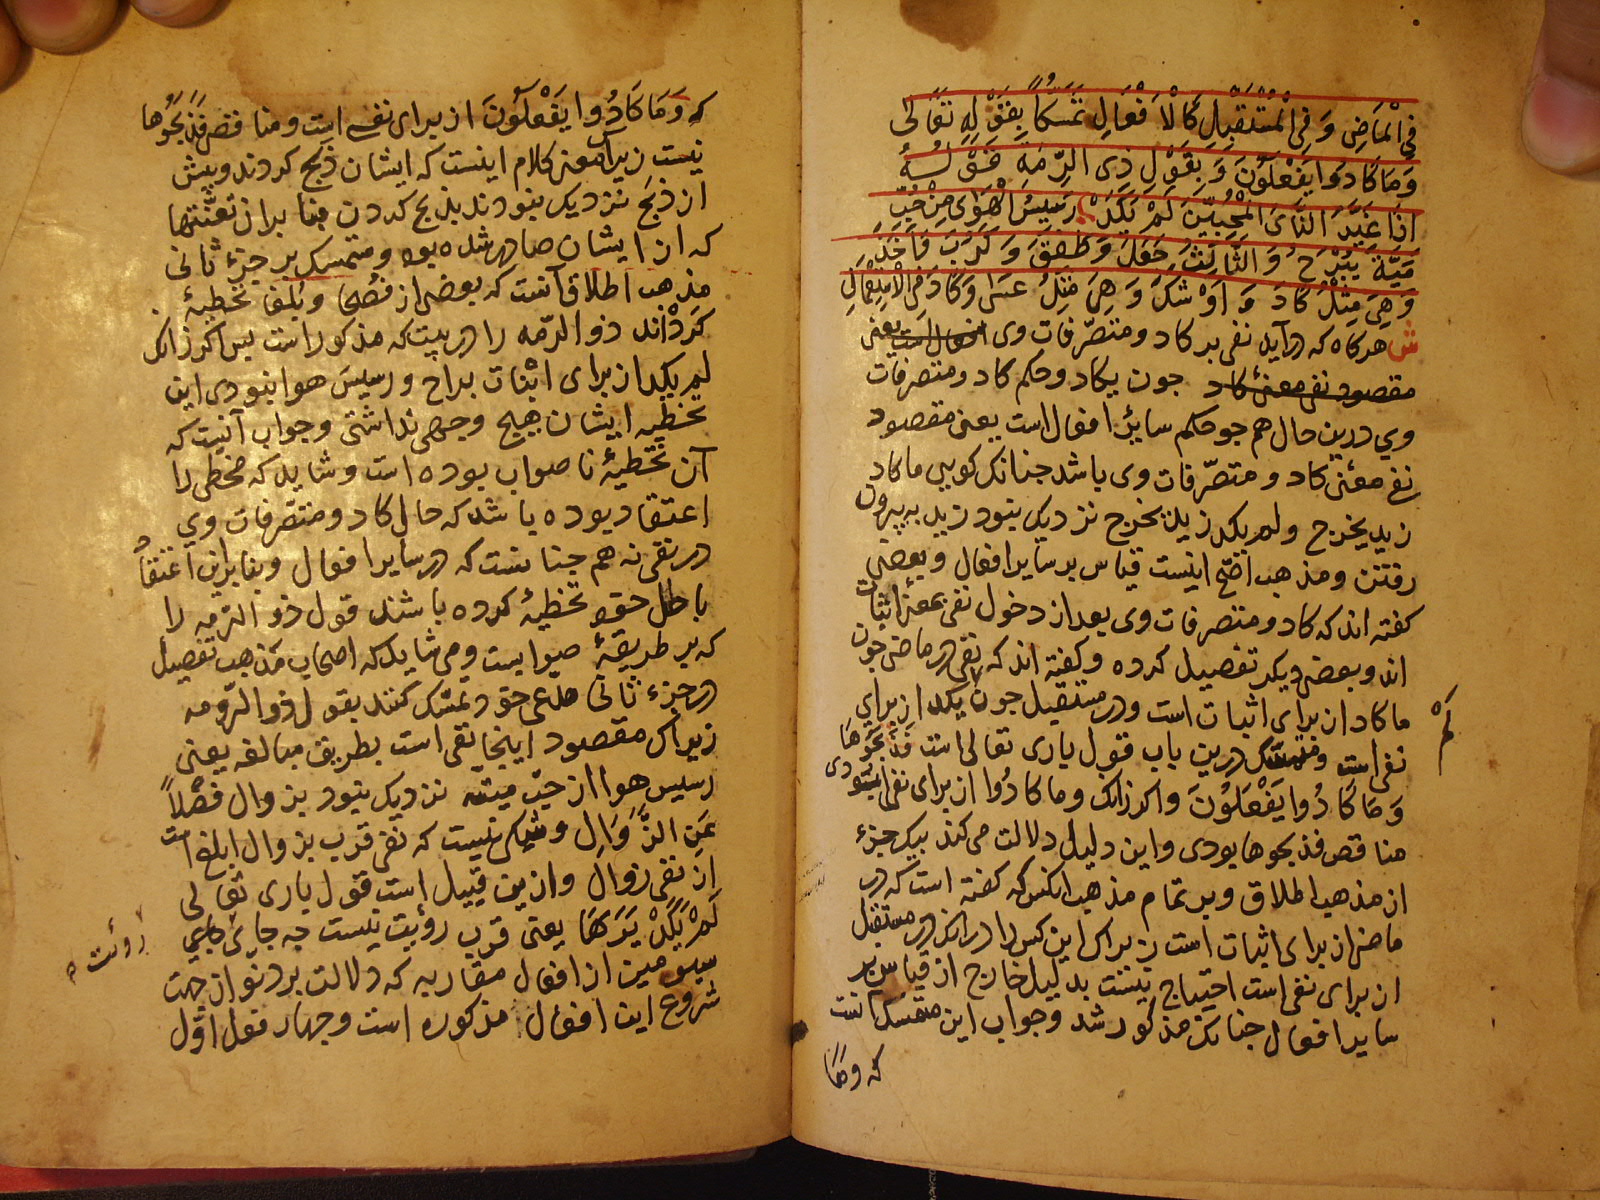 فِي الْمَاضِي وَ فِي الْمُسْتَقْبِلِ كَالْاَفْعَالِ تَمَسُّكاً بِقَوْلِهِ تَعَالٰی
وَمَا كَادُوا يَفْعَلُونَ وَ بِقَوْلِ ذِی الرِّمَةِ قَوْلُهُ
اِذَا غَيَّرَ النَّأیُ الْمُحِبِّينَ لَمْ يَكَدْ رَسِيسُ الْهَوٰی مِنْ حُبِّ
مَيَّةَ يَبْرَحُ وَ الثَّالِثُ جَعَلَ وَ طَفِقَ وَ كَرَبَ وَ اَخَذَ
وَ هِيَ مِثْلُ كَادَ وَ اَوْشَكَ وَ هِيَ مِثْلُ عَسٰی وَ كَادَ فِی الْاِسْتِعْمَالِ
ش هرکاه که درآید نفی بر کاد و متصرّفات وی افعال است یعنی
مقصود نفی معنیٔ کاد جون یکاد و حکم کاد و متصرفات
وی درین حال هم جو حکم سایر افعال است یعنی مقصود
نفی معنی کاد و متصرّفات وی باشد جنانک کویی ما کاد
زید یخرج و لم یکد زید یخرج نزدیک نبود زید به بیرون
رفتن و مذهب اصّح اینست قیاس بر سایر افعال و بعضی
کفته اند که کاد و متصرفات وی بعد از دخول نفی بمعنی اثبات
اند و بعضی دیکر تفصیل کرده و کفته اند که نفی در ماضی جون
ما کاد از برای اثبات است و در مستقبل جون یکد از برای
لم
نفی است و متمسّک درین باب قول باری تعالی است فَذَبَحُوهَا
وَ مَا كَادُوا يَفْعَلُونَ و اکر زانک و ما کادُوا از برای نفی نبودی
مناقض فذبحوها بودی و این دلیل دلالت می کند بیک جزء
از مذهب اطلاق و بر تمام مذهب انکس که کفته است که در
ماضی از برای اثبات است زیراک این کس را در انک در مستقبل
از برای نفی است احتیاج نیست بدلیل خارج از قیاس بر
سایر افعال جنانک مذکور شد و جواب این متمسک آنست
که وما
که وَمَا كَادُوا يَفْعَلُونَ از برای نفی است و مناقض فَذَبَحُوهَا
نیست زیراک معنی کلام اینست که ایشان ذبح کردند و پیش
از ذبح نزدیک نبودند بذبح کردن بنا بران تعنّتها
که از ایشان صادر شده بود و متمسک بر جزء ثانی
مذهب اطلاق آنست که بعضی از فُصَحا و بُلَغا تخطیهٔ
کرده اند ذو الرمّه را در بیت که مذکور است پس اکر زانک
لم یکد از برای اثبات براح و رسیس هوا نبودی این
تخطیه ایشان هیچ وجهی نداشتی و جواب آنیست که
آن تخطیهٔ نا صواب بوده است و شاید که مخطی را
اعتقاد بوده باشد که حال کاد و متصرفات وی
در نفی نه هم جنانست که در سایر افعال و بنابرین اعتقاد
باطل خود تخطیهٔ کرده باشند قول ذو الرمه را
که بر طریقهٔ صوابست و می شاید که اصحاب مذهب تفصیل
در جزء ثانی مدعی خود تمسّک کنند بقول ذو الرّومه
زیراک مقصود اینجا نفی است بطریق مبالغه یعنی
رسیس هوا از حبّ میّه نزدیک نبود بزوال فَضْلاً
عَنِ الزَّوَالِ و شکی نیست که نفی قرب بزوال ابلغ است
از نفی زوال و ازین قبیل است قول باری تعالی
لَمْ يَكَدْ يَرَىهَا یعنی قرب رؤیت نیست جه جای
رؤئت
سیومین از افعال مقاربه که دلالت بر دنو از جهت
شروع این افعال مذکوره است و جهار قول اوّل